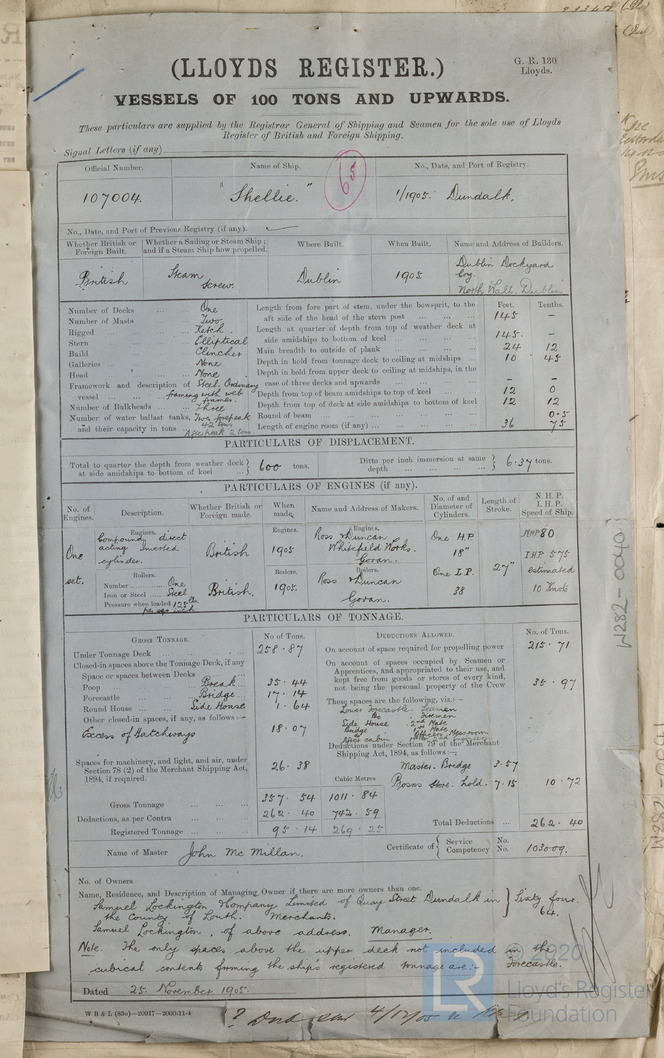 (LLOYDS REGISTER.)
G. R. 130
Lloyds.
VESSELS OF 100 TONS AND UPWARDS.
These particulars are supplied by the Registrar General of Shipping and Seamen for the sole use of Lloyds
Register of British and Foreign Shipping.
Signal Letters (if any)
Official Number. Name of Ship. No., Date, and Port of Registry.
107004. "Shellie." 65 1/1905 Dundalk.
No., Date, and Port of Previous Registry (if any).
Whether British or Foreign Built. Whether a Sailing or Steam Ship; and if a Steam Ship how propelled. Where Built. When Built. Name and Address of Builders.
British Steam Screw. Dublin 1905 Dublin Dockyard Coy. North Wall, Dublin
Number of Decks One
Number of Masts Two
Rigged Ketch
Stern Elliptical
Build Clincher
Galleries None
Head None
Framework and description of vessel Steel. Ordinary framing with web frames.
Number of Bulkheads Three
Number of water ballast tanks, and their capacity in tons Two forepeak 42 tons Afterpeak 2 tons
Feet. Tenths.
Length from fore part of stem, under the bowsprit, to the aft side of the head of the stern post 145 –
Length at quarter of depth from top of weather deck at side amidships to bottom of keel 145 –
Main breadth to outside of plank 24 12
Depth in hold from tonnage deck to ceiling at midships 10 45
Depth in hold from upper deck to ceiling at midships, in the case of three decks and upwards – –
Depth from top of beam amidships to top of keel 12 0
Depth from top of deck at side amidships to bottom of keel 12 12
Round of beam 0·5
Length of engine room (if any) 36 75
PARTICULARS OF DISPLACEMENT.
Total to quarter the depth from weather deck at side amidships to bottom of keel 600 tons.
Ditto per inch immersion at same depth 6·37 tons.
PARTICULARS OF ENGINES (if any).
No. of Engines. Description. Whether British or Foreign made. When made. Name and Address of Makers. No. of and Diameter of Cylinders. Length of Stroke. N.H.P. I.H.P. Speed of Ship.
One set.
Engines. Compound direct acting inverted cylinder. British Engines. 1905 Engines. Ross & Duncan Whitefield Works. Govan. One H.P. 18" One L.P. 38 27" NHP 80 IHP 575 estimated 10 Knots
Boilers. Number One
Iron or Steel Steel
Pressure when loaded 125 lbs per sq inch
British. Boilers. 1905. Boilers. Ross & Duncan Govan.
PARTICULARS OF TONNAGE.
GROSS TONNAGE. No. of Tons.
Under Tonnage Deck 258·87
Closed-in spaces above the Tonnage Deck, if any
Space or spaces between Decks
Poop Break 35·44
Forecastle Bridge 17·14
Round House Side House 1·64
Other closed-in spaces, if any, as follows:—
Excess of Hatchways 18·07
Spaces for machinery, and light, and air, under Section 78 (2) of the Merchant Shipping Act, 1894, if required. 26·38
Cubic Metres
Gross Tonnage 357·54 1011·84
Deductions, as per Contra 262·40 742·59
Registered Tonnage 95·14 269·25
DEDUCTIONS ALLOWED. No. of Tons.
On account of space required for propelling power 215·71
On account of spaces occupied by Seamen or Apprentices, and appropriated to their use, and kept free from goods or stores of every kind, not being the personal property of the Crew 35·97
These spaces are the following, viz.:—
Lower Forecastle Seamen
Do Firemen
Side House 2nd Mate
Bridge 1st Mate
Aft cabin
Deductions under Section 79 of the Merchant Shipping Act, 1894, as follows:—
Master. Bridge 3·57
Bosns Store. hold. 7·15 10·72
Total Deductions 262·40
Name of Master John McMillan.
Certificate of Service No. Competency No. 103009.
No. of Owners
Name, Residence, and Description of Managing Owner if there are more owners than one.
Samuel Lockington & Company Limited of Quay Street Dundalk in } Sixty four
the County of Louth. Merchants. 64.
Samuel Lockington, of above address. Manager.
Note. The only spaces above the upper deck not included in the
cubical contents forming the ship's registered tonnage are:- Forecastle.
Dated 25 November 1905.
W B & L (83o)—20917—2000-11-4
4/12/05
W282-0040
© 2020
Lloyd's Register
Foundation
LR